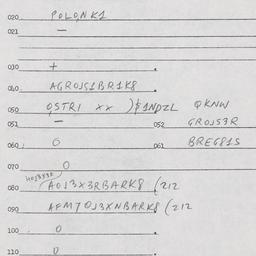 020 POLONK1
021 —
030 +
040 AGROJS1BR1K8
050 OSTRI XX )$1NDZL QKNW
051 — 052 GROJS3R
060 0 061 BREG81S
070 0
HOJ3Y3R
080 AOJ3X3RBARK8 (212
090 AFM7OJ3XNBARK8 (212
100 0
110 0